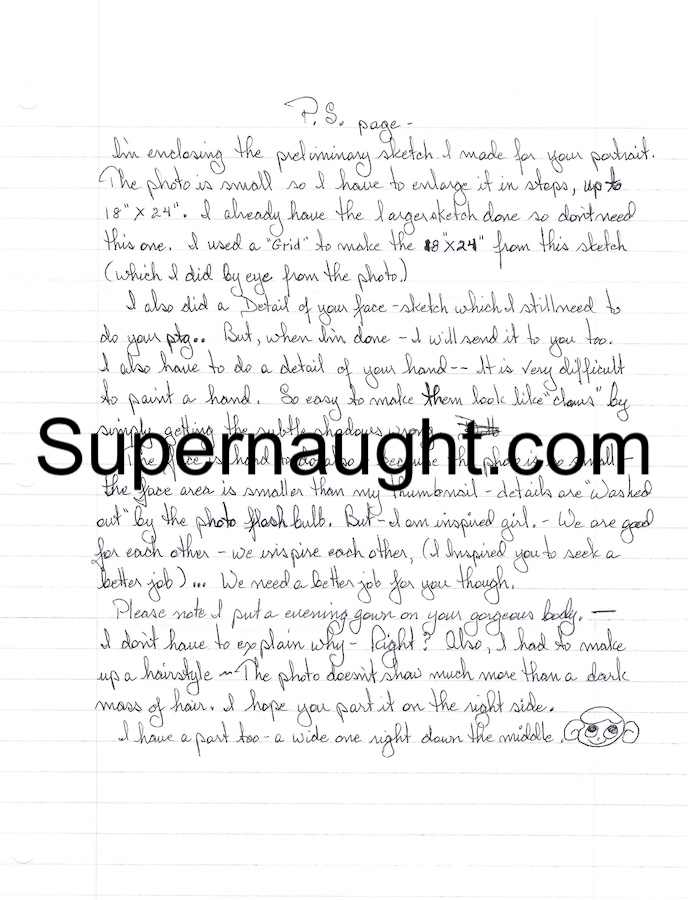 P.S. page -
I'm enclosing the preliminary sketch I made for your portrait.
The photo is small so I have to enlarge it in steps, up to
18" X 24". I already have the larger sketch done so don't need
this one. I used a "Grid" to make the 18"X24" from this sketch
(which I did by eye from the photo.)
I also did a Detail of your face - sketch which I still need to
do your ptg.. But, when I'm done - I will send it to you too.
I also have to do a detail of your hand -- It is very difficult
to paint a hand. So easy to make them look like "claws" by
simply getting the subtle shadows wrong.
Supernaught.com
The face is hard to do also - because the photo is so small -
the face area is smaller than my thumbnail - details are "washed
out" by the photo flash bulb. But - I am inspired girl. - We are good
for each other - we inspire each other, (I Inspired you to seek a
better job) ... We need a better job for you though.
Please note I put a evening gown on your gorgeous body. —
I don't have to explain why - Right? Also, I had to make
up a hairstyle -- The photo doesn't show much more than a dark
mass of hair. I hope you part it on the right side.
I have a part too - a wide one right down the middle.